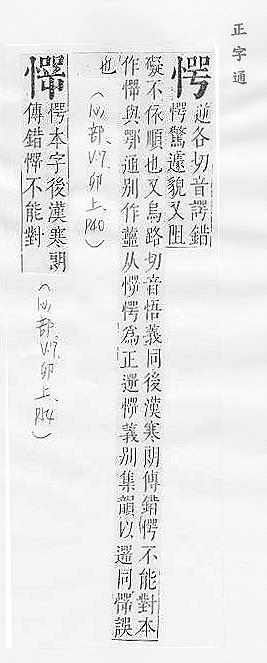 正字通
愕
逆各切音諤錯
愕驚遽貌又阻
礙不依順也又烏路切音悟義同後漢寒朗傳錯愕不能對本
作與鄂通別作蘁从愕為正遻義別集韻以遻同誤
也
(心部、V.9.卯上、P.40)
愕本字後漢寒朗
傳錯不能對
(心部、V.9.卯上、P.54)